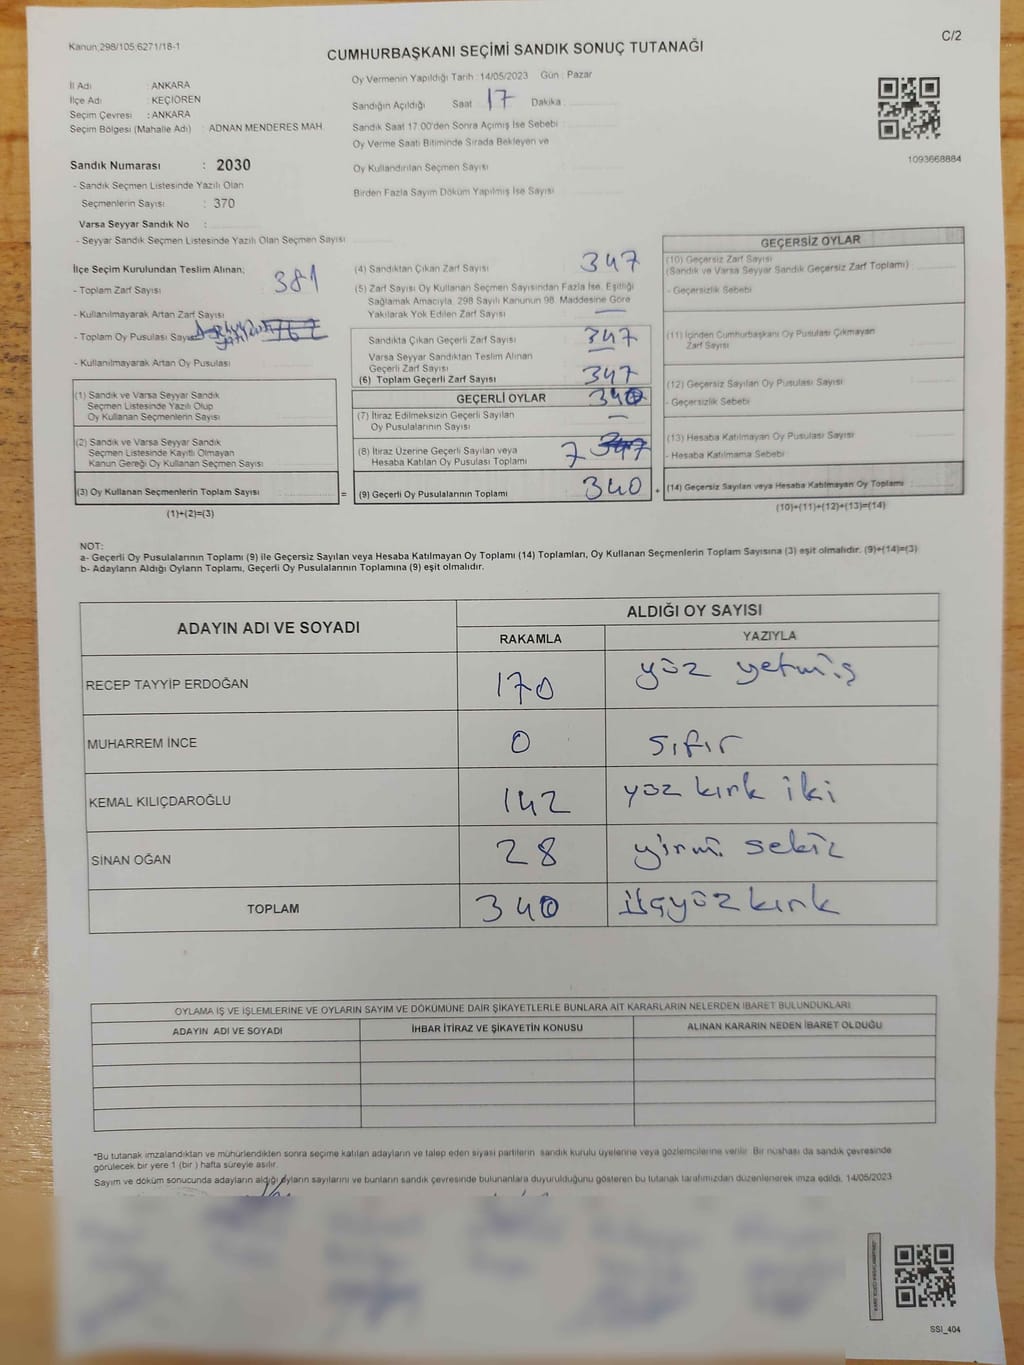 Kanun;298/105;6271/18-1
C/2
CUMHURBAŞKANI SEÇİMİ SANDIK SONUÇ TUTANAĞI
İl Adı : ANKARA
İlçe Adı : KEÇİÖREN
Seçim Çevresi : ANKARA
Seçim Bölgesi (Mahalle Adı) : ADNAN MENDERES MAH.
Oy Vermenin Yapıldığı Tarih : 14/05/2023 Gün : Pazar
Sandığın Açıldığı Saat 17 Dakika :
Sandık Saat 17.00'den Sonra Açımış İse Sebebi :
Oy Verme Saati Bitiminde Sırada Bekleyen ve
Oy Kullandırılan Seçmen Sayısı
Birden Fazla Sayım Döküm Yapılmış İse Sayısı
1093668884
Sandık Numarası : 2030
- Sandık Seçmen Listesinde Yazılı Olan
Seçmenlerin Sayısı : 370
Varsa Seyyar Sandık No :
- Seyyar Sandık Seçmen Listesinde Yazılı Olan Seçmen Sayısı
İlçe Seçim Kurulundan Teslim Alınan;
- Toplam Zarf Sayısı 381
- Kullanılmayarak Artan Zarf Sayısı
- Toplam Oy Pusulası Sayısı
- Kullanılmayarak Artan Oy Pusulası
(1) Sandık ve Varsa Seyyar Sandık
Seçmen Listesinde Yazılı Olup
Oy Kullanan Seçmenlerin Sayısı
(2) Sandık ve Varsa Seyyar Sandık
Seçmen Listesinde Kayıtlı Olmayan
Kanun Gereği Oy Kullanan Seçmen Sayısı
(3) Oy Kullanan Seçmenlerin Toplam Sayısı
(1)+(2)=(3)
(4) Sandıktan Çıkan Zarf Sayısı 347
(5) Zarf Sayısı Oy Kullanan Seçmen Sayısından Fazla İse, Eşitliği
Sağlamak Amacıyla, 298 Sayılı Kanunun 98. Maddesine Göre
Yakılarak Yok Edilen Zarf Sayısı —
Sandıkta Çıkan Geçerli Zarf Sayısı 347
Varsa Seyyar Sandıktan Teslim Alınan
Geçerli Zarf Sayısı —
(6) Toplam Geçerli Zarf Sayısı 347
GEÇERLİ OYLAR
(7) İtiraz Edilmeksizin Geçerli Sayılan
Oy Pusulalarının Sayısı 340
(8) İtiraz Üzerine Geçerli Sayılan veya
Hesaba Katılan Oy Pusulası Toplamı 7 347
= (9) Geçerli Oy Pusulalarının Toplamı 340
GEÇERSİZ OYLAR
(10) Geçersiz Zarf Sayısı
(Sandık ve Varsa Seyyar Sandık Geçersiz Zarf Toplamı)
- Geçersizlik Sebebi
(11) İçinden Cumhurbaşkanı Oy Pusulası Çıkmayan
Zarf Sayısı
(12) Geçersiz Sayılan Oy Pusulası Sayısı
- Geçersizlik Sebebi
(13) Hesaba Katılmayan Oy Pusulası Sayısı
- Hesaba Katılmama Sebebi
+ (14) Geçersiz Sayılan veya Hesaba Katılmayan Oy Toplamı
(10)+(11)+(12)+(13)=(14)
NOT:
a- Geçerli Oy Pusulalarının Toplamı (9) ile Geçersiz Sayılan veya Hesaba Katılmayan Oy Toplamı (14) Toplamları, Oy Kullanan Seçmenlerin Toplam Sayısına (3) eşit olmalıdır. (9)+(14)=(3)
b- Adayların Aldığı Oyların Toplamı, Geçerli Oy Pusulalarının Toplamına (9) eşit olmalıdır.
ADAYIN ADI VE SOYADI
ALDIĞI OY SAYISI
RAKAMLA YAZIYLA
RECEP TAYYİP ERDOĞAN 170 yüz yetmiş
MUHARREM İNCE 0 sıfır
KEMAL KILIÇDAROĞLU 142 yüz kırk iki
SİNAN OĞAN 28 yirmi sekiz
TOPLAM 340 üçyüz kırk
OYLAMA İŞ VE İŞLEMLERİNE VE OYLARIN SAYIM VE DÖKÜMÜNE DAİR ŞİKAYETLERLE BUNLARA AİT KARARLARIN NELERDEN İBARET BULUNDUKLARI
ADAYIN ADI VE SOYADI İHBAR İTİRAZ VE ŞİKAYETİN KONUSU ALINAN KARARIN NEDEN İBARET OLDUĞU
*Bu tutanak imzalandıktan ve mühürlendikten sonra seçime katılan adayların ve talep eden siyasi partilerin sandık kurulu üyelerine veya gözlemcilerine verilir. Bir nushası da sandık çevresinde
görülecek bir yere 1 (bir) hafta süreyle asılır.
Sayım ve döküm sonucunda adayların aldığı oyların sayılarını ve bunların sandık çevresinde bulunanlara duyurulduğunu gösteren bu tutanak tarafımızdan düzenlenerek imza edildi. 14/05/2023
SSI_404